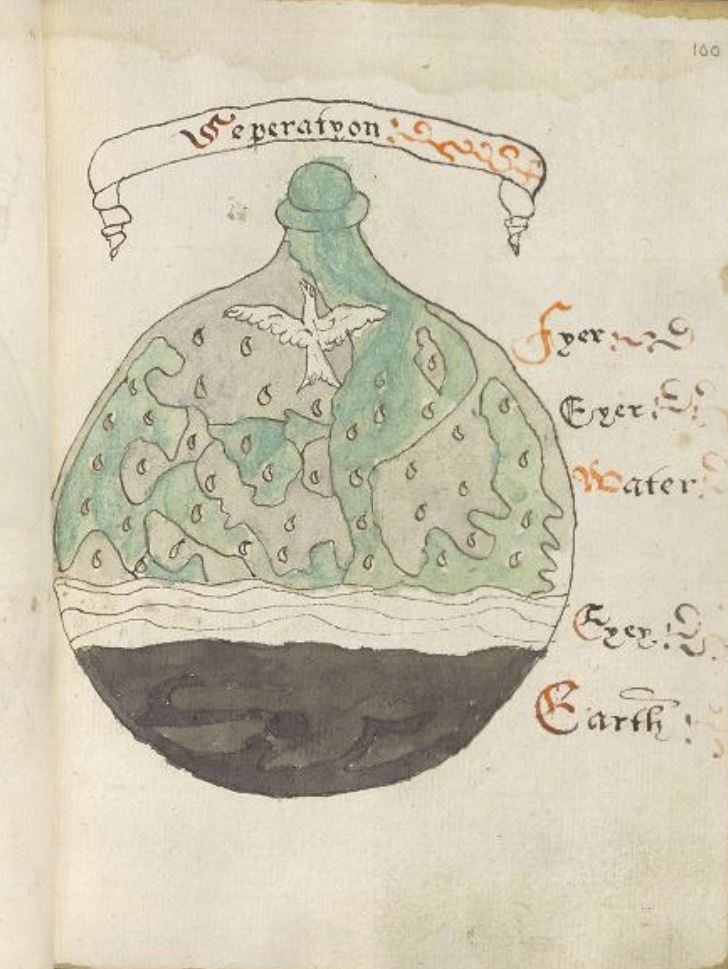 100
Seperatyon
Fyer
Eyer
Water
Eyer
Earth